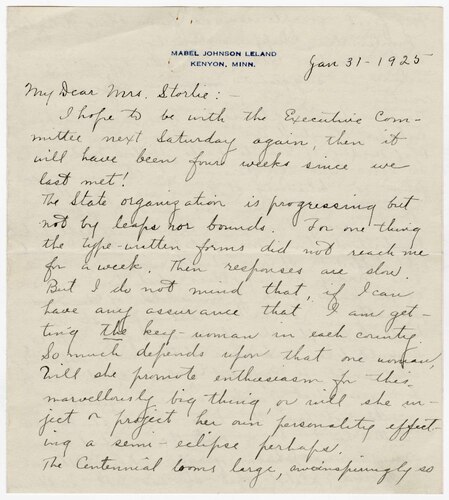 MABEL JOHNSON LELAND
KENYON, MINN.
Jan 31-1925
My Dear Mrs. Storlie:-
I hope to be with the Executive Com-
mittee next Saturday again, then it
will have been four weeks since we
last met!
The State organization is progressing but
not by leaps nor bounds. For one thing
the type-written forms did not reach me
for a week. Then responses are slow.
But I do not mind that, if I can
have any assurance that I am get-
ting the key-woman in each county.
So much depends upon that one woman,
Will she promote enthusiasm for this
marvellously big thing, or will she in-
ject or project her own personality effect-
ing a semi-eclipse perhaps.
The Centennial looms large, aweinspiringly so